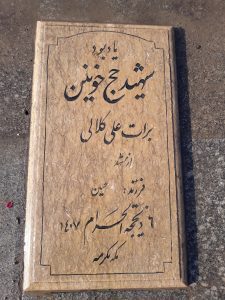 یادبود
شهید حج خونین
برات علی کلالی
از مشهد
فرزند: حسین
۶ ذیحجه الحرام ۱۴۰۷
مکه مکرمه